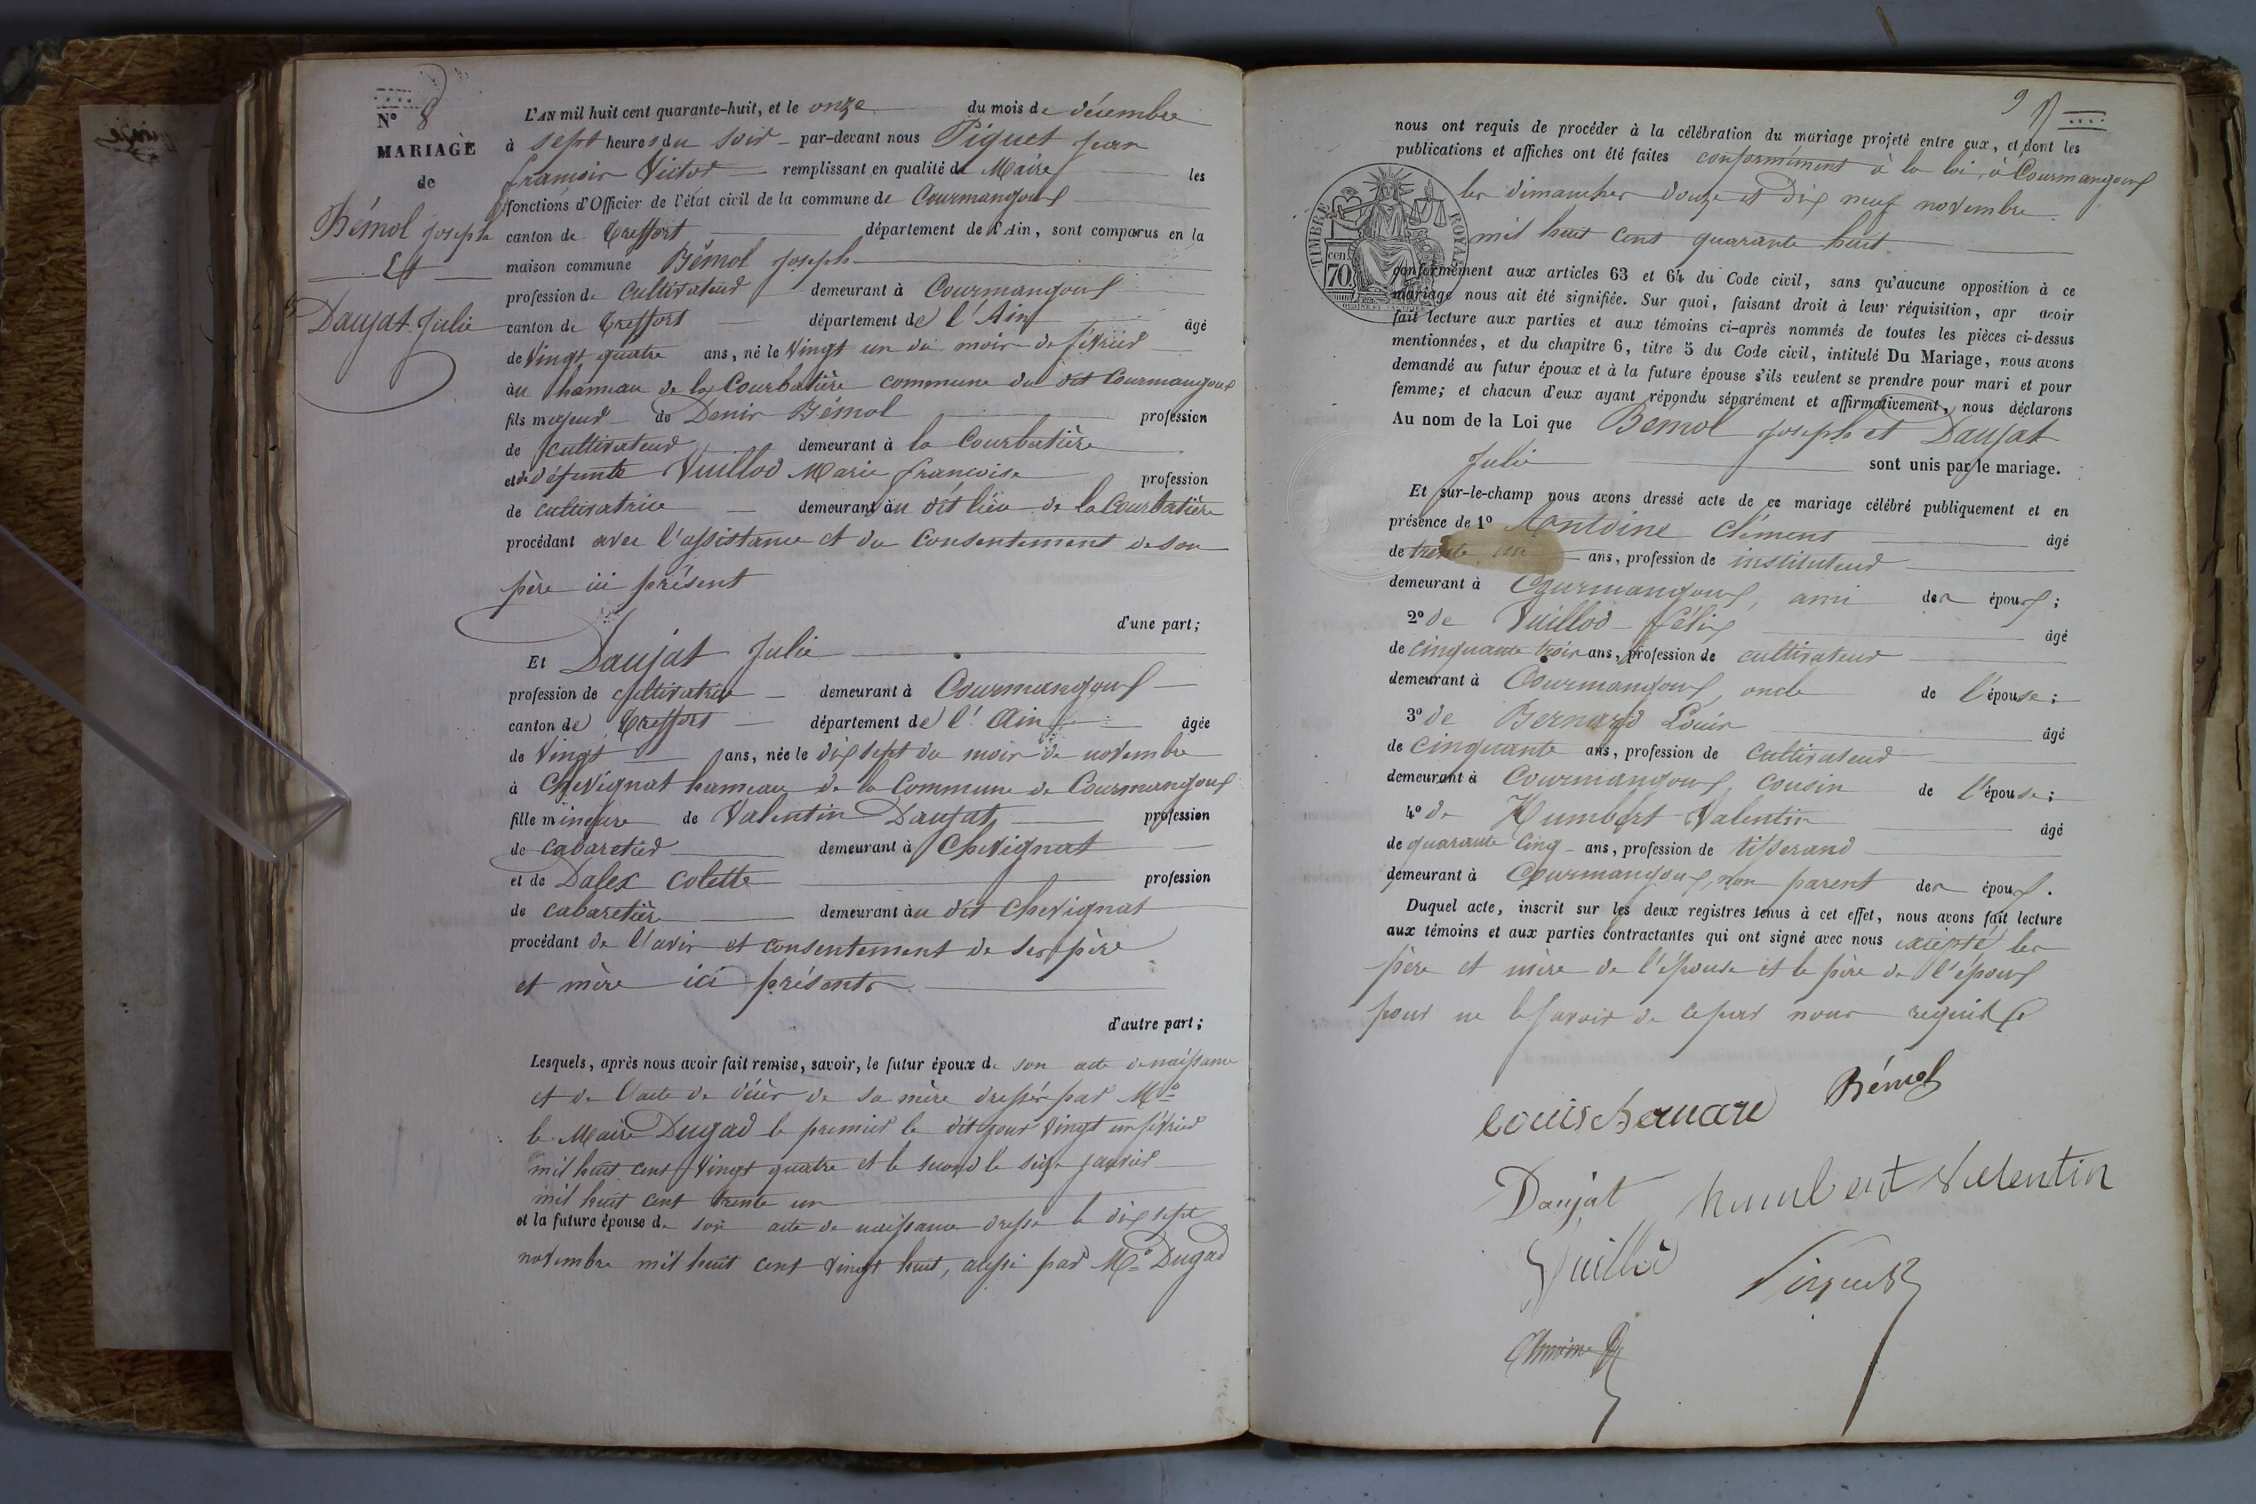 N° 8
MARIAGE
de
Bémol Joseph
Et
Daujat Julie
L'AN mil huit cent quarante-huit, et le onze du mois de décembre
à sept heures du soir par-devant nous Piquet jean
francois Victor remplissant en qualité de Maire les
fonctions d'Officier de l'état civil de la commune de Courmangoux
canton de Treffort département de l'Ain, sont comparus en la
maison commune Bémol Joseph
profession de cultivateur demeurant à Courmangoux
canton de Treffort département de l'Ain âgé
de Vingt quatre ans, né le Vingt un du mois de février
au hameau de la Courbatière commune du dit Courmangoux
fils majeur de Denis Bémol profession
de cultivateur demeurant à la Courbatière
et de défunte Vuillod Marie francoise profession
de cultivatrice demeurant au dit lieu de la Courbatière
procédant avec l'assistance et du Consentement de son
père ici présent
d'une part;
Et Daujat Julie
profession de cultivatrice demeurant à Courmangoux
canton de Treffort département de l'Ain âgée
de Vingt ans, née le dix sept du mois de novembre
à Chevignat hameau de la Commune de Courmangoux
fille mineure de Valentin Daujat profession
de cabaretier demeurant à Chevignat
et de Dalex Colette profession
de cabaretière demeurant au dit Chevignat
procédant de l'avis et consentement de ses père
et mère ici présents
d'autre part;
Lesquels, après nous avoir fait remise, savoir, le futur époux de son acte de naissance
et de l'acte de décès de sa mère dressés par Mr
le Maire Dugad le premier le dit jour Vingt un février
mil huit cent Vingt quatre et le second le seize janvier
mil huit cent trente un
et la future épouse de son acte de naissance dressé le dix sept
novembre mil huit cent vingt huit, aussi par Mr Dugad
nous ont requis de procéder à la célébration du mariage projeté entre eux, et dont les
publications et affiches ont été faites conformément à la loi, à Courmangoux
les dimanches douze et dix neuf novembre
mil huit cent quarante huit
TIMBRE ROYAL
cen
70
conformément aux articles 63 et 64 du Code civil, sans qu'aucune opposition à ce
mariage nous ait été signifiée. Sur quoi, faisant droit à leur réquisition, apr avoir
fait lecture aux parties et aux témoins ci-après nommés de toutes les pièces ci-dessus
mentionnées, et du chapitre 6, titre 5 du Code civil, intitulé Du Mariage, nous avons
demandé au futur époux et à la future épouse s'ils veulent se prendre pour mari et pour
femme; et chacun d'eux ayant répondu séparément et affirmativement, nous déclarons
Au nom de la Loi que Bémol Joseph et Daujat
Julie sont unis par le mariage.
Et sur-le-champ nous avons dressé acte de ce mariage célébré publiquement et en
présence de 1° Antoine Clément âgé
de trente un ans, profession de instituteur
demeurant à Courmangoux, ami des époux;
2° de Vuillod félix âgé
de cinquante trois ans, profession de cultivateur
demeurant à Courmangoux, oncle de l'épouse;
3° de Bernard Louis âgé
de cinquante ans, profession de cultivateur
demeurant à Courmangoux, cousin de l'épouse;
4° de Humbert Valentin âgé
de quarante cinq ans, profession de tisserand
demeurant à Courmangoux, non parent des époux.
Duquel acte, inscrit sur les deux registres tenus à cet effet, nous avons fait lecture
aux témoins et aux parties contractantes qui ont signé avec nous excepté les
père et mère de l'épouse et le père de l'époux
pour ne le savoir de ce par nous requis
Bémol
Louis bernard
Daujat humbert Valentin
Vuillod Piquet
Antoine